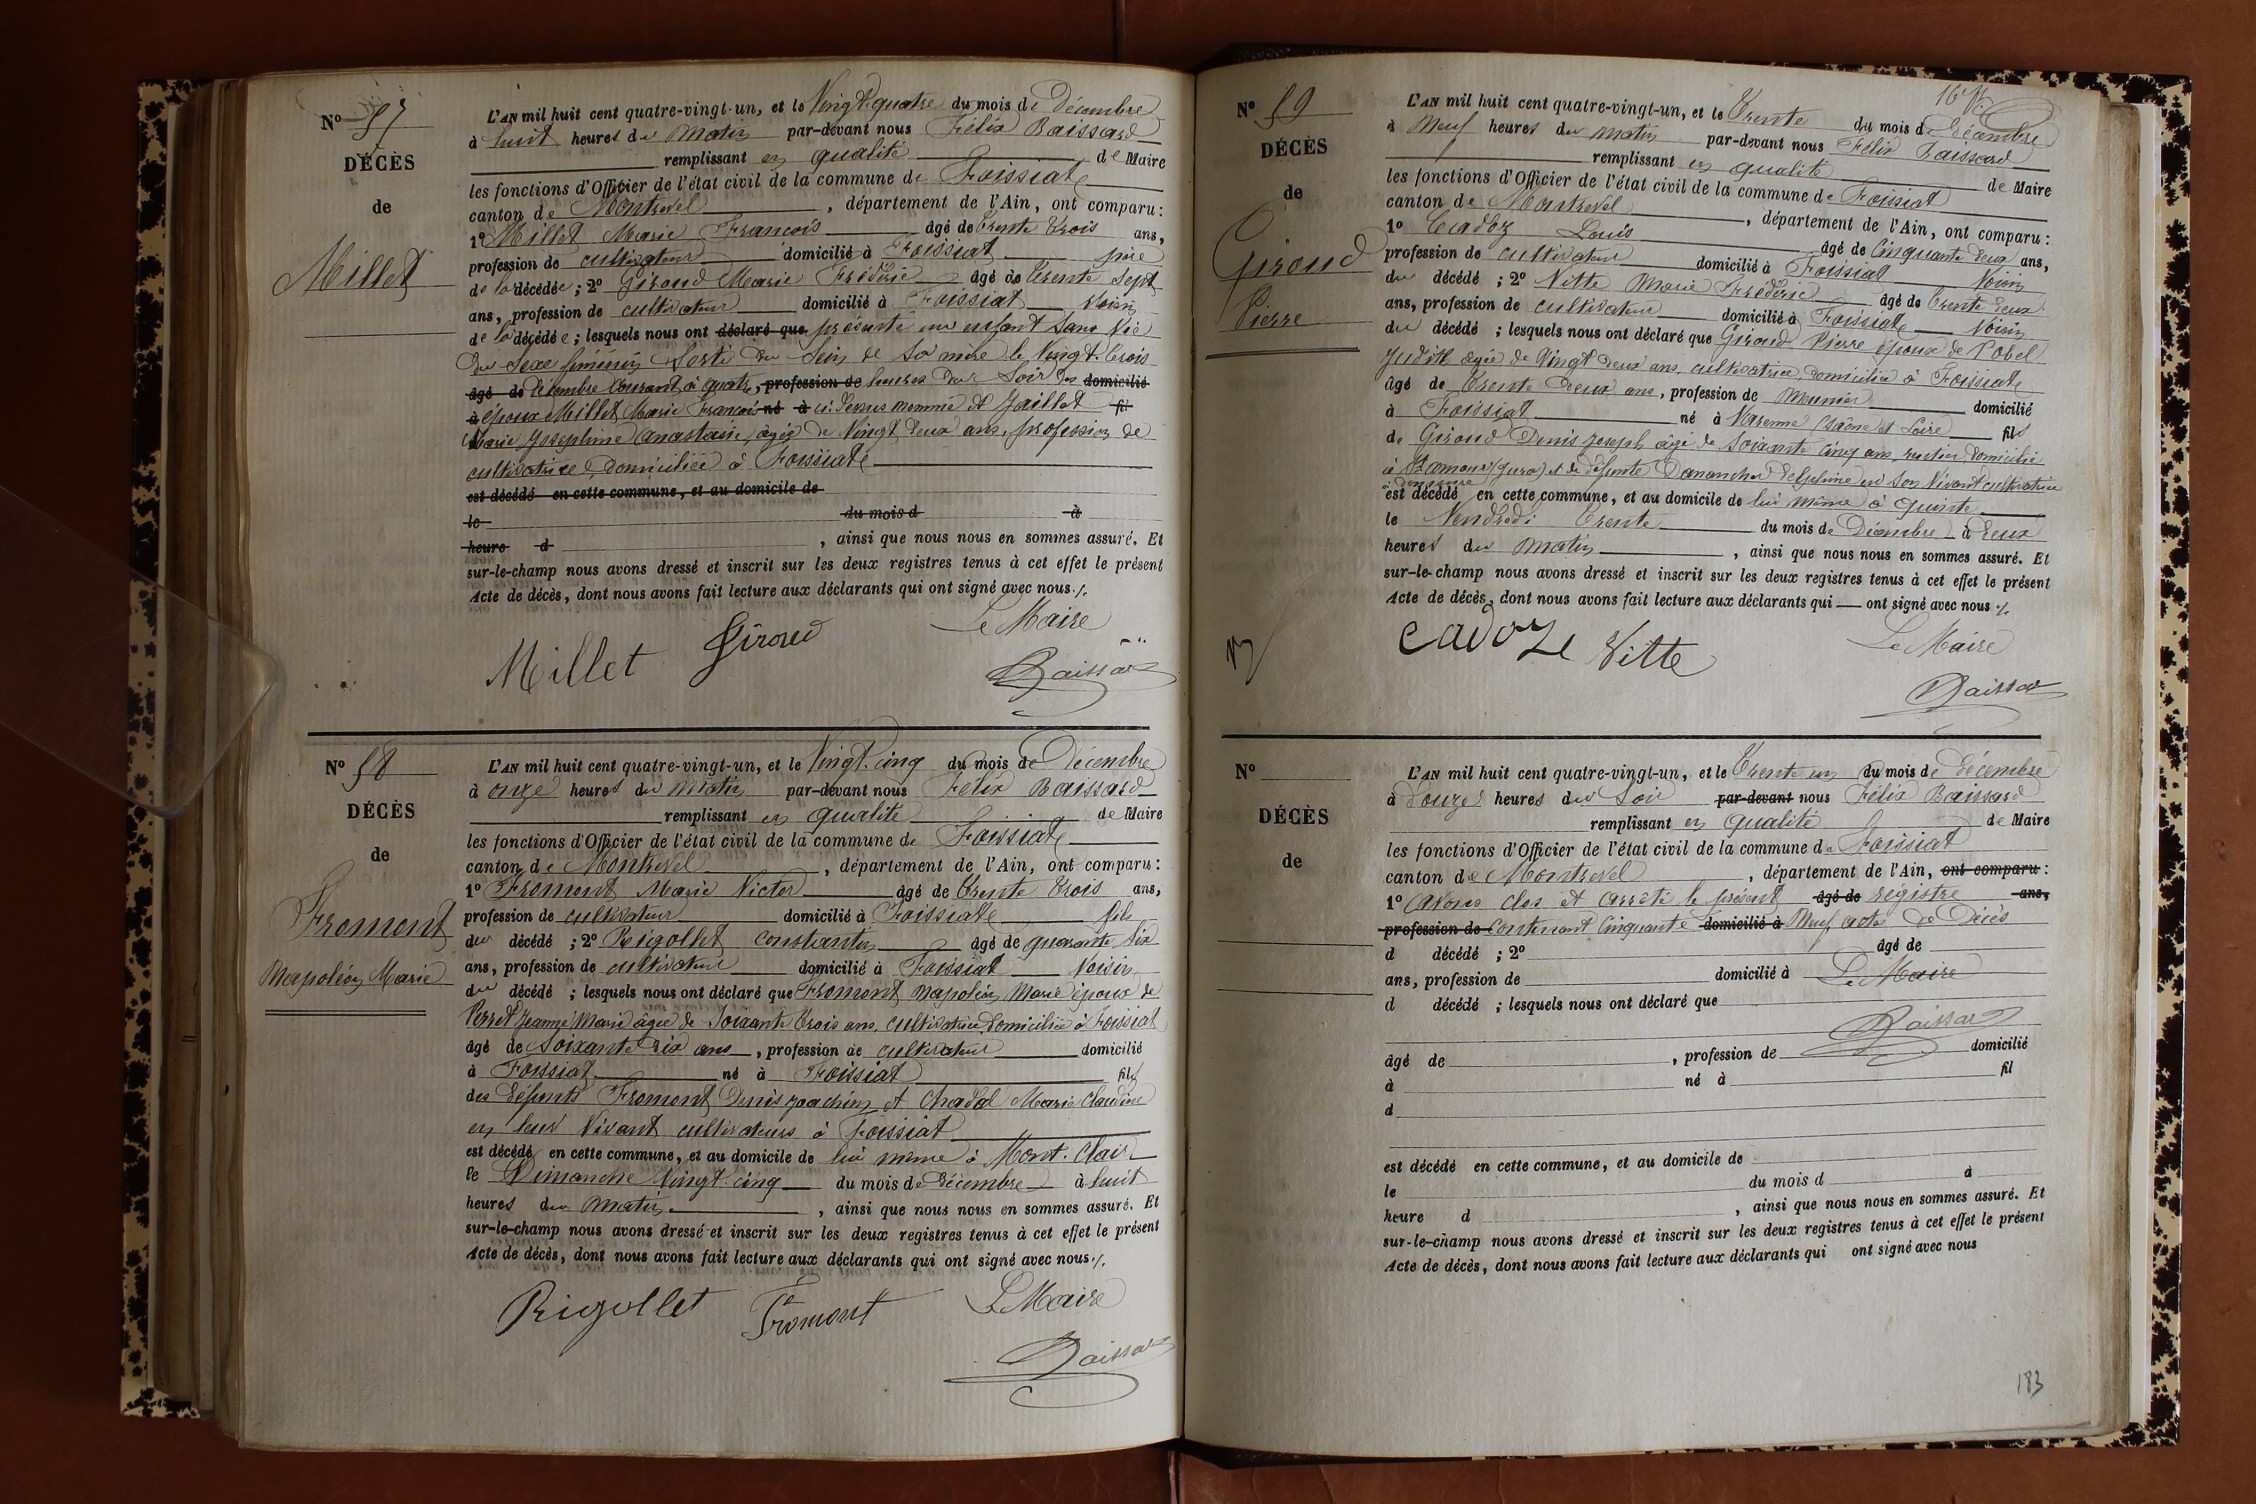 N° 57
DÉCÈS
de
Millet
L'AN mil huit cent quatre-vingt-un, et le Vingt-quatre du mois de Décembre
à huit heures du matin par-devant nous Félix Baissard
remplissant en qualité de Maire
les fonctions d'Officier de l'état civil de la commune de Foissiat
canton de Montrevel, département de l'Ain, ont comparu :
1° Millet Marie François âgé de trente trois ans,
profession de cultivateur domicilié à Foissiat père
de la décédée ; 2° Giroud Marie Frédéric âgé de trente sept
ans, profession de cultivateur domicilié à Foissiat voisin
de la décédée ; lesquels nous ont déclaré que présenté un enfant sans vie
du sexe féminin sorti du sein de sa mère le vingt-trois
âgé de Décembre courant à quatre, profession de heures du soir des domicilié
à époux Millet Marie François né à ci-dessus nommé et Jaillet fil
Marie Joséphine Anastasie, âgée de vingt deux ans, profession de
cultivatrice, domiciliée à Foissiat
est décédé en cette commune, et au domicile de
le du mois d à
heure d , ainsi que nous nous en sommes assuré. Et
sur-le-champ nous avons dressé et inscrit sur les deux registres tenus à cet effet le présent
Acte de décès, dont nous avons fait lecture aux déclarants qui ont signé avec nous ./.
Millet Giroud Le Maire
Baissard
N° 58
DÉCÈS
de
Fromont
Napoléon Marie
L'AN mil huit cent quatre-vingt-un, et le Vingt-cinq du mois de Décembre
à onze heures du matin par-devant nous Félix Baissard
remplissant en qualité de Maire
les fonctions d'Officier de l'état civil de la commune de Foissiat
canton de Montrevel, département de l'Ain, ont comparu :
1° Fromont Marie Victor âgé de trente trois ans,
profession de cultivateur domicilié à Foissiat fils
du décédé ; 2° Rigollet Constantin âgé de quarante six
ans, profession de cultivateur domicilié à Foissiat voisin
du décédé ; lesquels nous ont déclaré que Fromont Napoléon Marie époux de
Perret Jeanne Marie âgée de soixante trois ans, cultivatrice domiciliée à Foissiat
âgé de soixante dix ans, profession de cultivateur domicilié
à Foissiat né à Foissiat fils
des défunts Fromont Denis Joachim et Chadal Marie Claudine
en leur vivant cultivateurs à Foissiat
est décédé en cette commune, et au domicile de lui même à Mont-Clair
le Dimanche vingt-cinq du mois de Décembre à huit
heures du matin, ainsi que nous nous en sommes assuré. Et
sur-le-champ nous avons dressé et inscrit sur les deux registres tenus à cet effet le présent
Acte de décès, dont nous avons fait lecture aux déclarants qui ont signé avec nous ./.
Rigollet Fromont Le Maire
Baissard
N° 59
DÉCÈS
de
Giroud
Pierre
L'AN mil huit cent quatre-vingt-un, et le Trente du mois de Décembre
à neuf heures du matin par-devant nous Félix Baissard
remplissant en qualité de Maire
les fonctions d'Officier de l'état civil de la commune de Foissiat
canton de Montrevel, département de l'Ain, ont comparu :
1° Cadoz Louis âgé de cinquante deux ans,
profession de cultivateur domicilié à Foissiat voisin
du décédé ; 2° Vitte Marie Frédéric âgé de trente deux
ans, profession de cultivateur domicilié à Foissiat voisin
du décédé ; lesquels nous ont déclaré que Giroud Pierre époux de Pobel
Judith âgée de vingt deux ans, cultivatrice, domiciliée à Foissiat
âgé de trente deux ans, profession de meunier domicilié
à Foissiat né à Varenne (Saône et Loire fils
de Giroud Denis Joseph âgé de soixante cinq ans, rentier domicilié
à St Amour (Jura) et de défunte Danancher Delphine en son vivant cultivatrice
est décédé en cette commune, et au domicile de lui même à Quinte
le Vendredi trente du mois de Décembre à deux
heures du matin, ainsi que nous nous en sommes assuré. Et
sur-le-champ nous avons dressé et inscrit sur les deux registres tenus à cet effet le présent
Acte de décès, dont nous avons fait lecture aux déclarants qui ont signé avec nous ./.
Cadoz Vitte Le Maire
Baissard
N°
DÉCÈS
de
L'AN mil huit cent quatre-vingt-un, et le Trente un du mois de Décembre
à Douze heures du soir par-devant nous Félix Baissard
remplissant en qualité de Maire
les fonctions d'Officier de l'état civil de la commune de Foissiat
canton de Montrevel, département de l'Ain, ont comparu :
1° avons clos et arrêté le présent âgé de registre ans,
profession de contenant cinquante domicilié à neuf actes de Décès
d décédé ; 2° âgé de
ans, profession de domicilié à Le Maire
d décédé ; lesquels nous ont déclaré que
Baissard
âgé de , profession de domicilié
à né à fil
d
est décédé en cette commune, et au domicile de
le du mois d à
heure d , ainsi que nous nous en sommes assuré. Et
sur-le-champ nous avons dressé et inscrit sur les deux registres tenus à cet effet le présent
Acte de décès, dont nous avons fait lecture aux déclarants qui ont signé avec nous
183